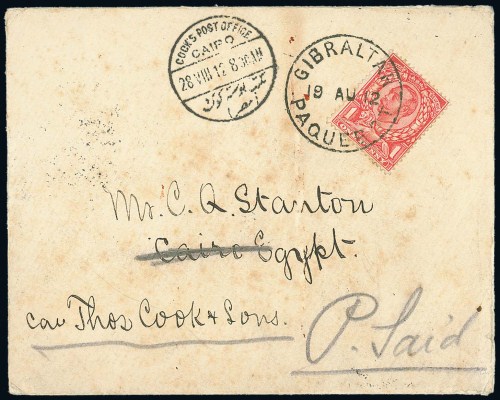 COOK'S POST OFFICE.
CAIRO
28 VIII 12 8 30 AM
GIBRALTAR
19 AU 12
PAQUEBOT
ONE PENNY
1 1
Mr. C. Q. Stanton
Cairo Egypt.
c/o Thos Cook & Sons.
P. Said